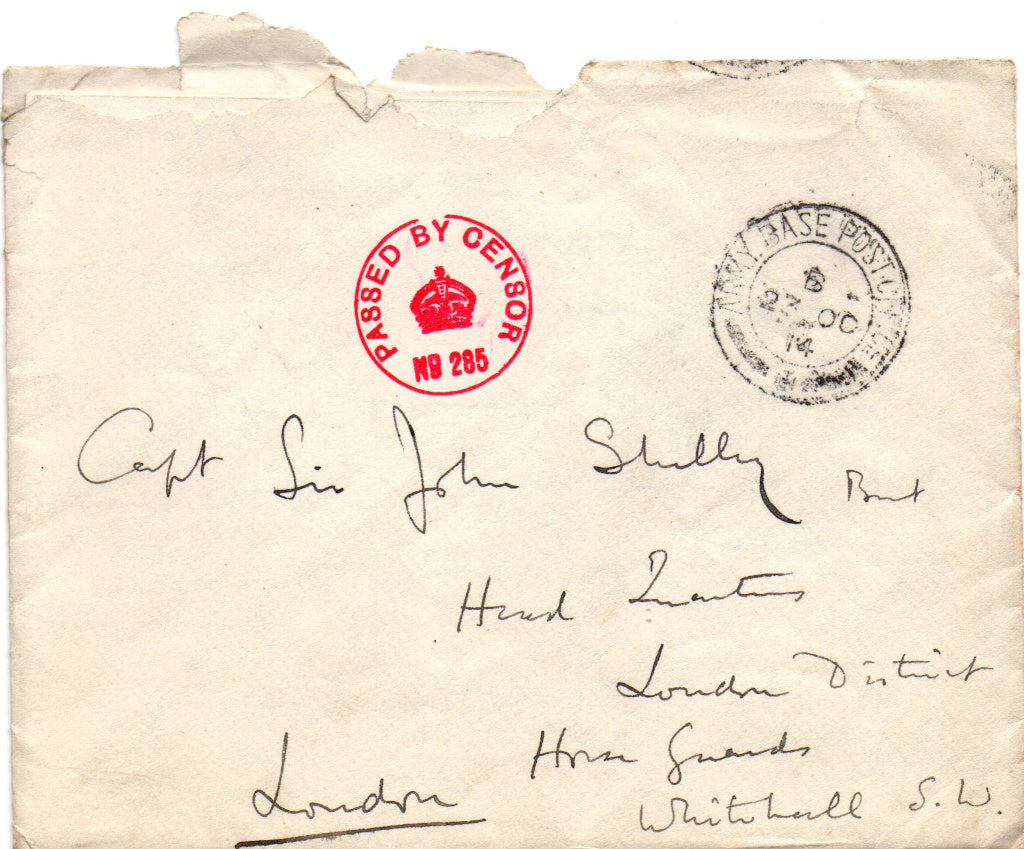 PASSED BY CENSOR
No 285
ARMY BASE POST OFFICE
B
27 OC
14
Capt Sir John Shelley Bart
Head Quarters
London District
Horse Guards
Whitehall S.W.
London